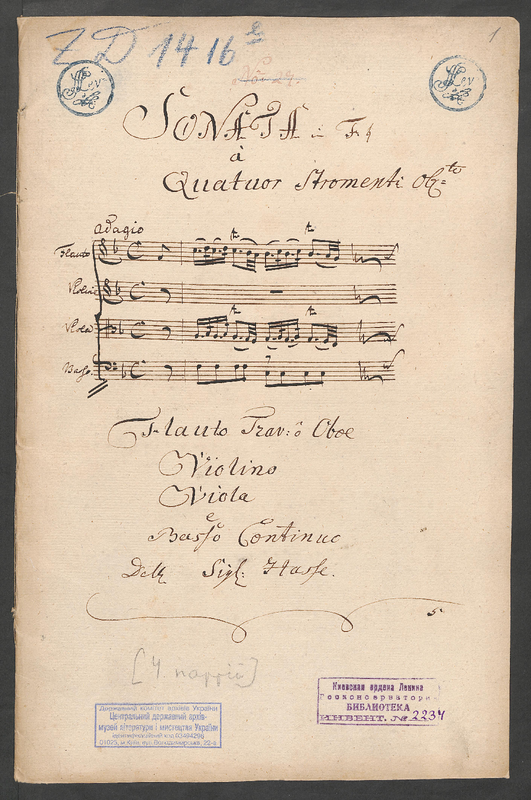 1
ZD 1416
SONATA in F
à
Quatuor Stromenti
adagio
Flauto
Violino
Viola
Basso
Flauto Trav: ô Oboe
Violino
Viola
e
Basso Continuo
Sigl: Hasse.
5.
[4. партії]
Державний комітет архівів України
Центральний державний архів-
музей літератури і мистецтва України
01025, м.Київ, вул. Володимирська, 22-а
Киевская ордена Ленина
Госконсерватория
БИБЛИОТЕКА
ИНВЕНТ. № 2234